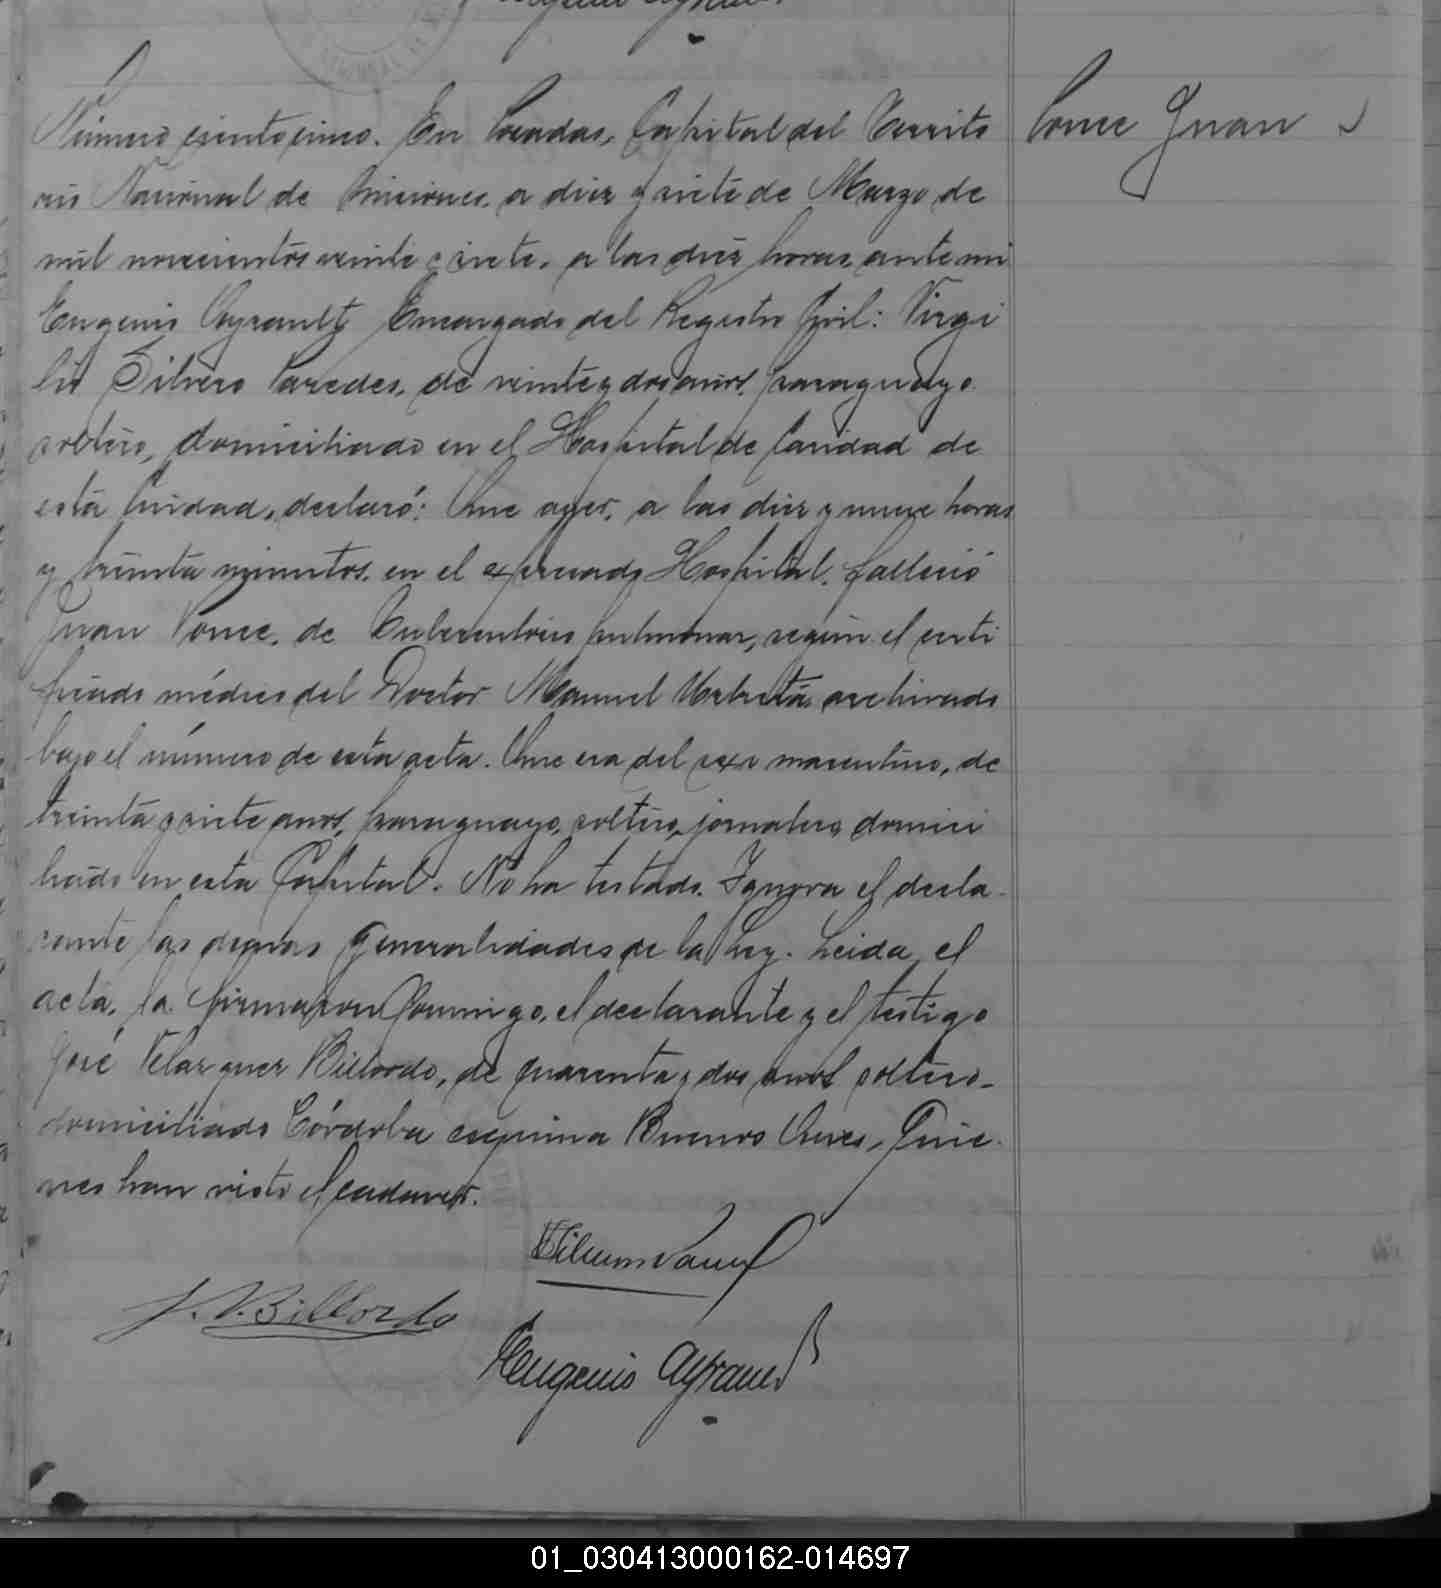 Ponce Juan
Número ciento cinco. En Posadas, Capital del Territo
rio Nacional de Misiones, a diez y siete de Marzo de
mil novecientos veinte y siete, a las diez horas, ante mi
Eugenio Ayrault, Encargado del Registro Civil: Virgi
lio Silvero Paredes, de veinte y dos años, paraguayo
soltero, domiciliado en el Hospital de Caridad de
esta Ciudad, declaró: Que ayer, a las diez y nueve horas
y treinta minutos, en el expresado Hospital, falleció
Juan Ponce, de Tuberculosis pulmonar, según el certi
ficado médico del Doctor Manuel archivado
bajo el número de esta acta. Que era del sexo masculino, de
treinta y siete años, paraguayo, soltero, jornalero, domici
liado en esta Capital. No ha testado. Ignora el decla
rante las demas generalidades de la Ley. Leida el
acta, la firmaron conmigo, el declarante y el testigo
José Velazquez Billordo, de cuarenta y dos años soltero
domiciliado Córdoba esquina Buenos Aires, Quie
nes han visto el cadaver.
J. V. Billordo
Eugenio Ayrault
01_030413000162-014697